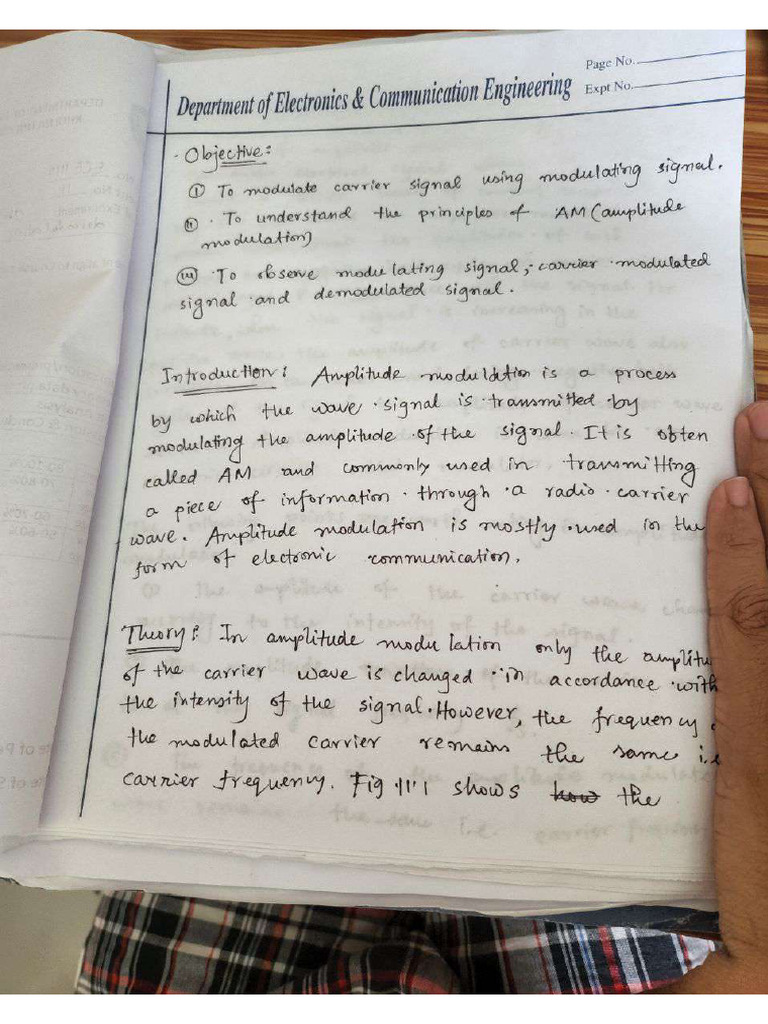 Page No.
Department of Electronics & Communication Engineering
Expt No.
Objective:
(i) To modulate carrier signal using modulating signal.
(ii) To understand the principles of AM (amplitude
modulation)
(iii) To observe modulating signal, carrier modulated
signal and demodulated signal.
Introduction: Amplitude modulation is a process
by which the wave signal is transmitted by
modulating the amplitude of the signal. It is often
called AM and commonly used in transmitting
a piece of information through a radio carrier
wave. Amplitude modulation is mostly used in the
form of electronic communication.
Theory: In amplitude modulation only the amplitu
of the carrier wave is changed in accordance with
the intensity of the signal. However, the frequency
the modulated carrier remains the same i.e
carrier frequency. Fig 11.1 shows how the